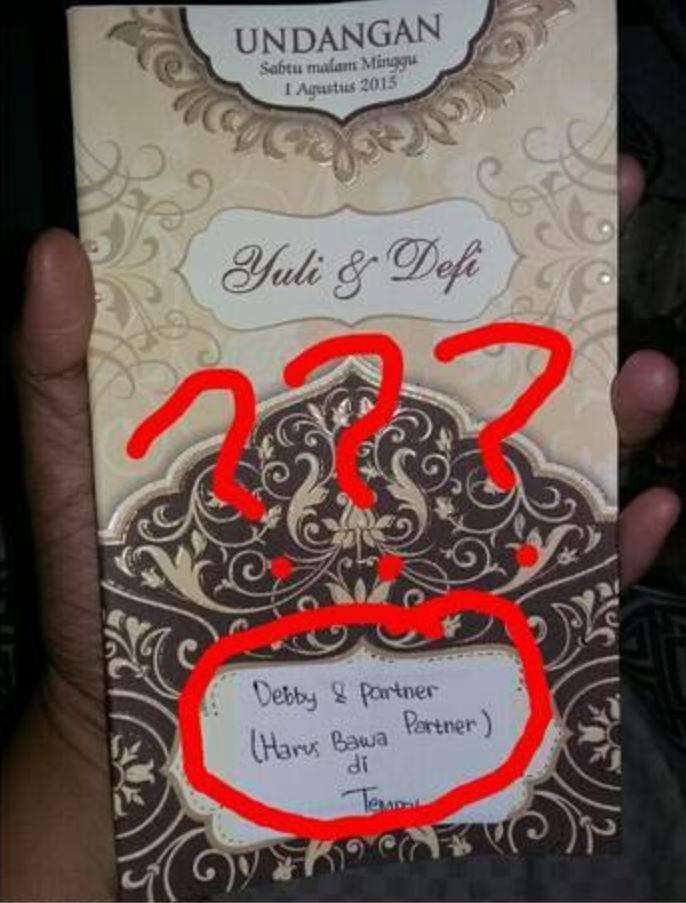 UNDANGAN
Sabtu malam Minggu
1 Agustus 2015
Yuli & Defi
? ? ?
Debby & partner
(Harus Bawa Partner)
di